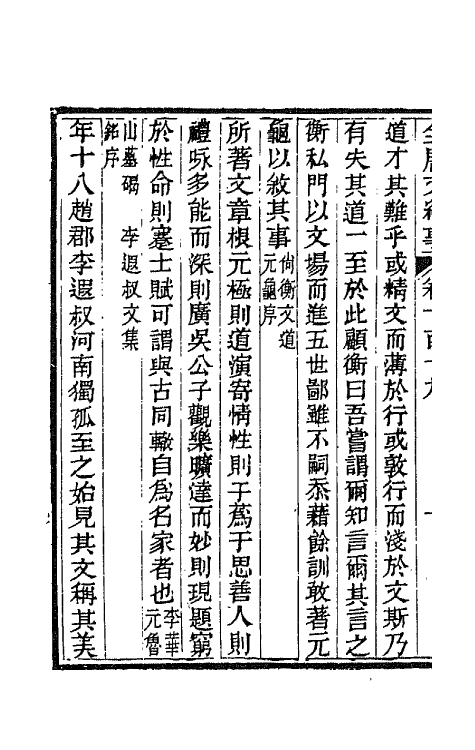 全唐文紀事 卷一百十九
道才其難乎或精文而薄於行或敦行而淺於文斯乃
有失其道一至於此顧衡曰吾嘗謂爾知言爾其言之
衡私門以文場而進五世鄙雖不嗣忝藉餘訓敢著元
龜以敘其事尚衡文道
元龜序
所著文章根元極則道演寄情性則于蔿于思善人則
禮咏多能而深則廣吳公子觀樂曠達而妙則現題窮
於性命則蹇士賦可謂與古同轍自為名家者也李華
元魯
山墓碣 李遐叔文集
銘序
年十八趙郡李遐叔河南獨孤至之始見其文稱其美